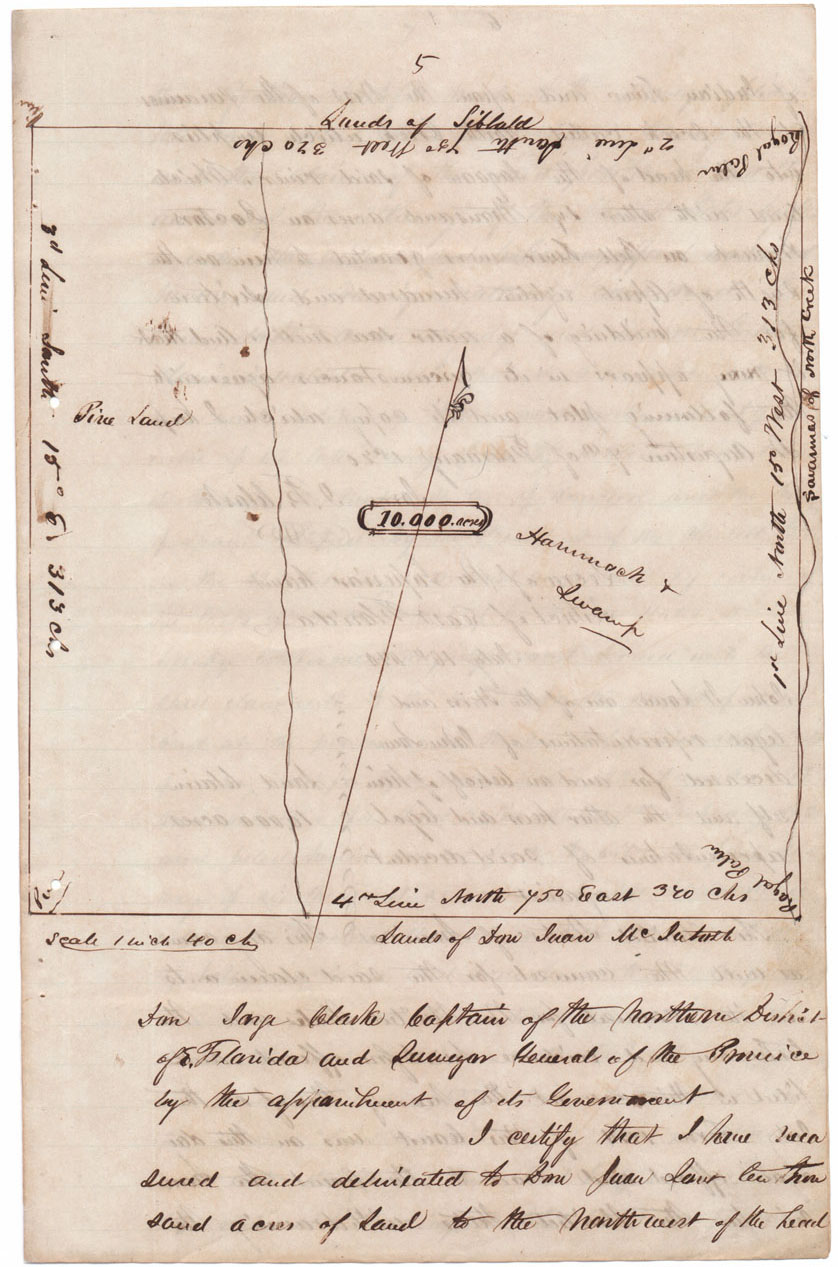 5
Lands of Sibbald
2d Line South 75° West 320 chs
Pine
Royal Palm
3d Line South 15° E 313 chs
1st Line North 15° West 313 chs
Savannas of North Creek
Pine Land
10.000 acres
Hammock &
Swamp
Royal Palm
4th Line North 75° East 320 chs
Scale 1 inch 40 ch
Lands of Don Juan McIntosh
Don Jorge Clarke Captain of the northern District
of E. Florida and Surveyor General of the Province
by the appointment of its Government
I certify that I have mea
sured and delineated to Don Juan Low ten thou
sand acres of Land to the northwest of the head